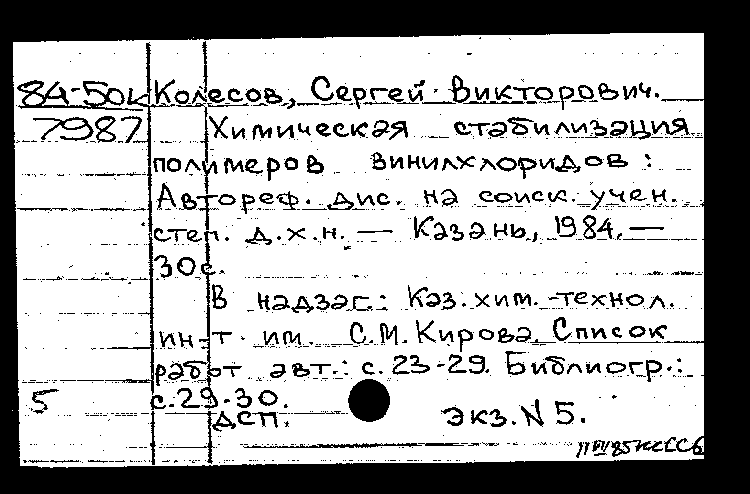 84-50к Колесов, Сергей Викторович.
7987 Химическая стабилизация
полимеров винилхлоридов :
Автореф. дис. на соиск. учен.
степ. д.х.н. — Казань, 1984. —
30с.
В надзаг.: Каз.хим.-технол.
ин-т им. С.М.Кирова. Список
работ авт.: с. 23-29. Библиогр.:
5 с.29-30.
ДСП. Экз. N 5.